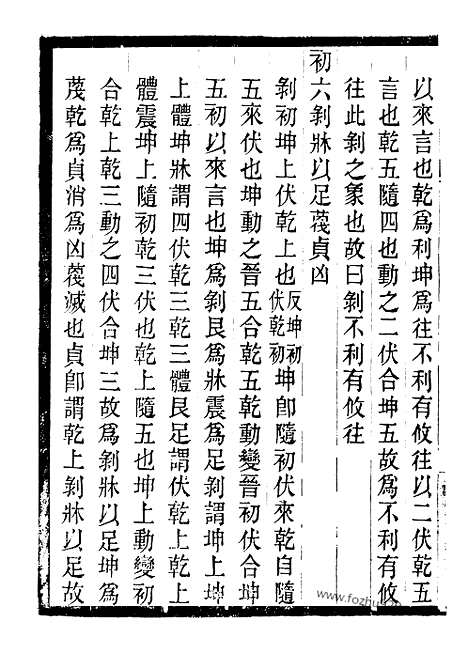 以來言也乾爲利坤爲往不利有攸往以二伏乾五
言也乾五隨四也動之二伏合坤五故爲不利有攸
往此剝之象也故曰剝不利有攸往
初六剝牀以足蔑貞凶
剝初坤上伏乾上也反坤初伏乾初坤卽隨初伏來乾自隨
五來伏也坤動之晉五合乾五乾動變晉初伏合坤
五初以來言也坤爲剝艮爲牀震爲足剝謂坤上坤
上體坤牀謂四伏乾三乾三體艮足謂伏乾上乾上
體震坤上隨初乾三伏也乾上隨五也坤上動變初
合乾上乾三動之四伏合坤三故爲剝牀以足坤爲
蔑乾爲貞消爲凶蔑滅也貞卽謂乾上剝牀以足故
www.fozhu...